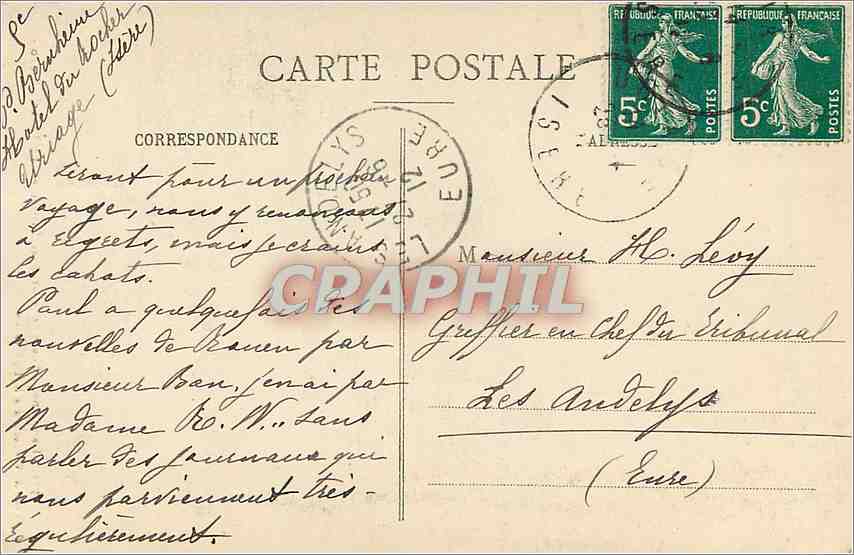 Sc
P. Bernheim
Hotel du Rocher
Uriage (Isère)
CARTE POSTALE
CORRESPONDANCE
REPUBLIQUE FRANÇAISE
5c
POSTES
REPUBLIQUE FRANÇAISE
5c
POSTES
ISERE
LES ANDELYS
EURE
seront pour un prochain
voyage, nous y renonçons
à regrets, mais je crains
les cahots.
Paul a quelquefois des
nouvelles de Rouen par
Monsieur Ban, j'en ai par
Madame R. W.. sans
parler des journaux qui
nous parviennent très-
régulièrement.
Monsieur H. Lévy
Greffier en Chef du Tribunal
Les Andelys
(Eure)
CPAPHIL